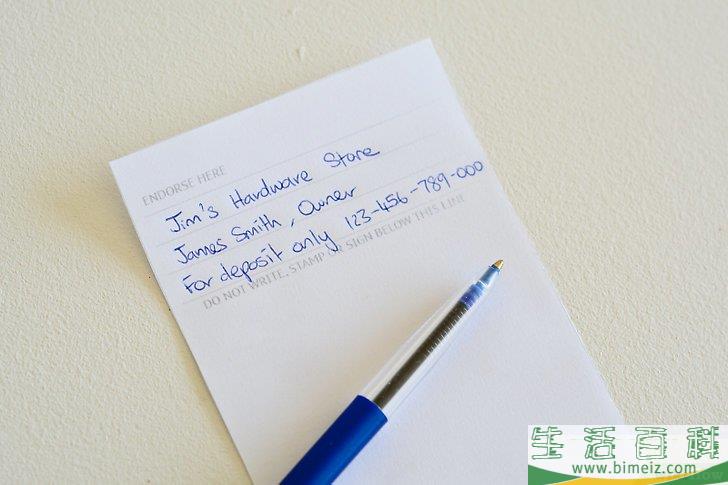 ENDORSE HERE
Jim's Hardware Store
James Smith, Owner
For deposit only 123-456-789-000
DO NOT WRITE, STAMP OR SIGN BELOW THIS LINE
生活百科
www.bimeiz.com